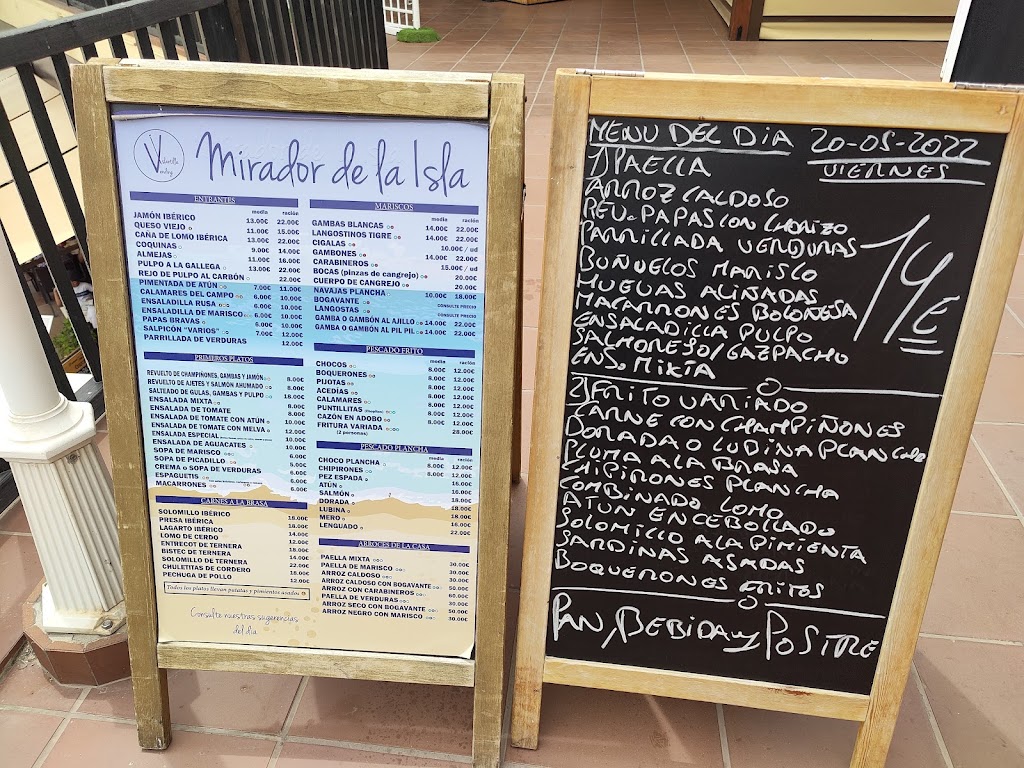 Mirador de la Isla
ENTRANTES
media ración
JAMÓN IBÉRICO 13.00€ 22.00€
QUESO VIEJO 11.00€ 15.00€
CAÑA DE LOMO IBÉRICA 13.00€ 22.00€
COQUINAS 9.00€ 14.00€
ALMEJAS 11.00€ 16.00€
PULPO A LA GALLEGA 13.00€ 22.00€
REJO DE PULPO AL CARBÓN 22.00€
PIMENTADA DE ATÚN 7.00€ 11.00€
CALAMARES DEL CAMPO 6.00€ 10.00€
ENSALADILLA RUSA 6.00€ 10.00€
ENSALADILLA DE MARISCO 6.00€ 10.00€
PAPAS BRAVAS 6.00€ 10.00€
SALPICÓN "VARIOS" 7.00€ 12.00€
PARRILLADA DE VERDURAS 12.00€
PRIMEROS PLATOS
REVUELTO DE CHAMPIÑONES, GAMBAS Y JAMÓN 8.00€
REVUELTO DE AJETES Y SALMÓN AHUMADO 8.00€
SALTEADO DE GULAS, GAMBAS Y PULPO 18.00€
ENSALADA MIXTA 8.00€
ENSALADA DE TOMATE 8.00€
ENSALADA DE TOMATE CON ATÚN 10.00€
ENSALADA DE TOMATE CON MELVA 12.00€
ENSALADA ESPECIAL 10.00€
ENSALADA DE AGUACATES 10.00€
SOPA DE MARISCO 6.00€
SOPA DE PICADILLO 5.00€
CREMA O SOPA DE VERDURAS 6.00€
ESPAGUETIS 6.00€
MACARRONES 6.00€
CARNES A LA BRASA
SOLOMILLO IBÉRICO
PRESA IBÉRICA 18.00€
LAGARTO IBÉRICO 14.00€
LOMO DE CERDO 12.00€
ENTRECOT DE TERNERA 18.00€
BISTEC DE TERNERA 14.00€
SOLOMILLO DE TERNERA 22.00€
CHULETITAS DE CORDERO 18.00€
PECHUGA DE POLLO 12.00€
Todos los platos llevan patatas y pimientos asados
Consulte nuestras sugerencias
del día
MARISCOS
media ración
GAMBAS BLANCAS 14.00€ 22.00€
LANGOSTINOS TIGRE 14.00€ 22.00€
CIGALAS 10.00€ / ud
GAMBONES 14.00€ 22.00€
CARABINEROS 15.00€ / ud
BOCAS (pinzas de cangrejo) 20.00€
CUERPO DE CANGREJO 20.00€
NAVAJAS PLANCHA 10.00€ 18.00€
BOGAVANTE CONSULTE PRECIO
LANGOSTAS CONSULTE PRECIO
GAMBA O GAMBÓN AL AJILLO 14.00€ 22.00€
GAMBA O GAMBÓN AL PIL PIL 14.00€ 22.00€
PESCADO FRITO
media ración
CHOCOS 8.00€ 12.00€
BOQUERONES 8.00€ 12.00€
PIJOTAS 8.00€ 12.00€
ACEDÍAS 8.00€ 12.00€
CALAMARES 8.00€ 12.00€
PUNTILLITAS 8.00€ 12.00€
CAZÓN EN ADOBO 8.00€ 12.00€
FRITURA VARIADA 28.00€
(2 personas)
PESCADO PLANCHA
media ración
CHOCO PLANCHA 8.00€ 12.00€
CHIPIRONES 8.00€ 12.00€
PEZ ESPADA 12.00€
ATÚN 16.00€
SALMÓN
DORADA
LUBINA
MERO 16.00€
LENGUADO 22.00€
ARROCES DE LA CASA
PAELLA MIXTA 30.00€
PAELLA DE MARISCO 30.00€
ARROZ CALDOSO 30.00€
ARROZ CALDOSO CON BOGAVANTE 50.00€
ARROZ CON CARABINEROS 60.00€
PAELLA DE VERDURAS 30.00€
ARROZ SECO CON BOGAVANTE 50.00€
ARROZ NEGRO CON MARISCO 30.00€
MENU DEL DIA 20-05-2022
VIERNES
1) PAELLA
ARROZ CALDOSO
REV. PAPAS CON CHORIZO
PARRILLADA VERDURAS
BUÑUELOS MARISCO
HUEVAS ALIÑADAS
MACARRONES BOLOÑESA
ENSALADILLA PULPO
SALMOREJO/GAZPACHO
ENS. MIXTA
14€
2) FRITO VARIADO
CARNE CON CHAMPIÑONES
DORADA O LUBINA PLANCHA
PLUMA A LA BRASA
CHIPIRONES PLANCHA
COMBINADO LOMO
ATUN ENCEBOLLADO
SOLOMILLO A LA PIMIENTA
SARDINAS ASADAS
BOQUERONES FRITOS
PAN, BEBIDA y POSTRE